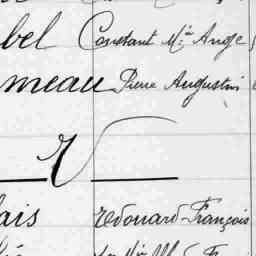 bel Constant M.ie Ange
meau Pierre Augustin
V
lais Edouard-François